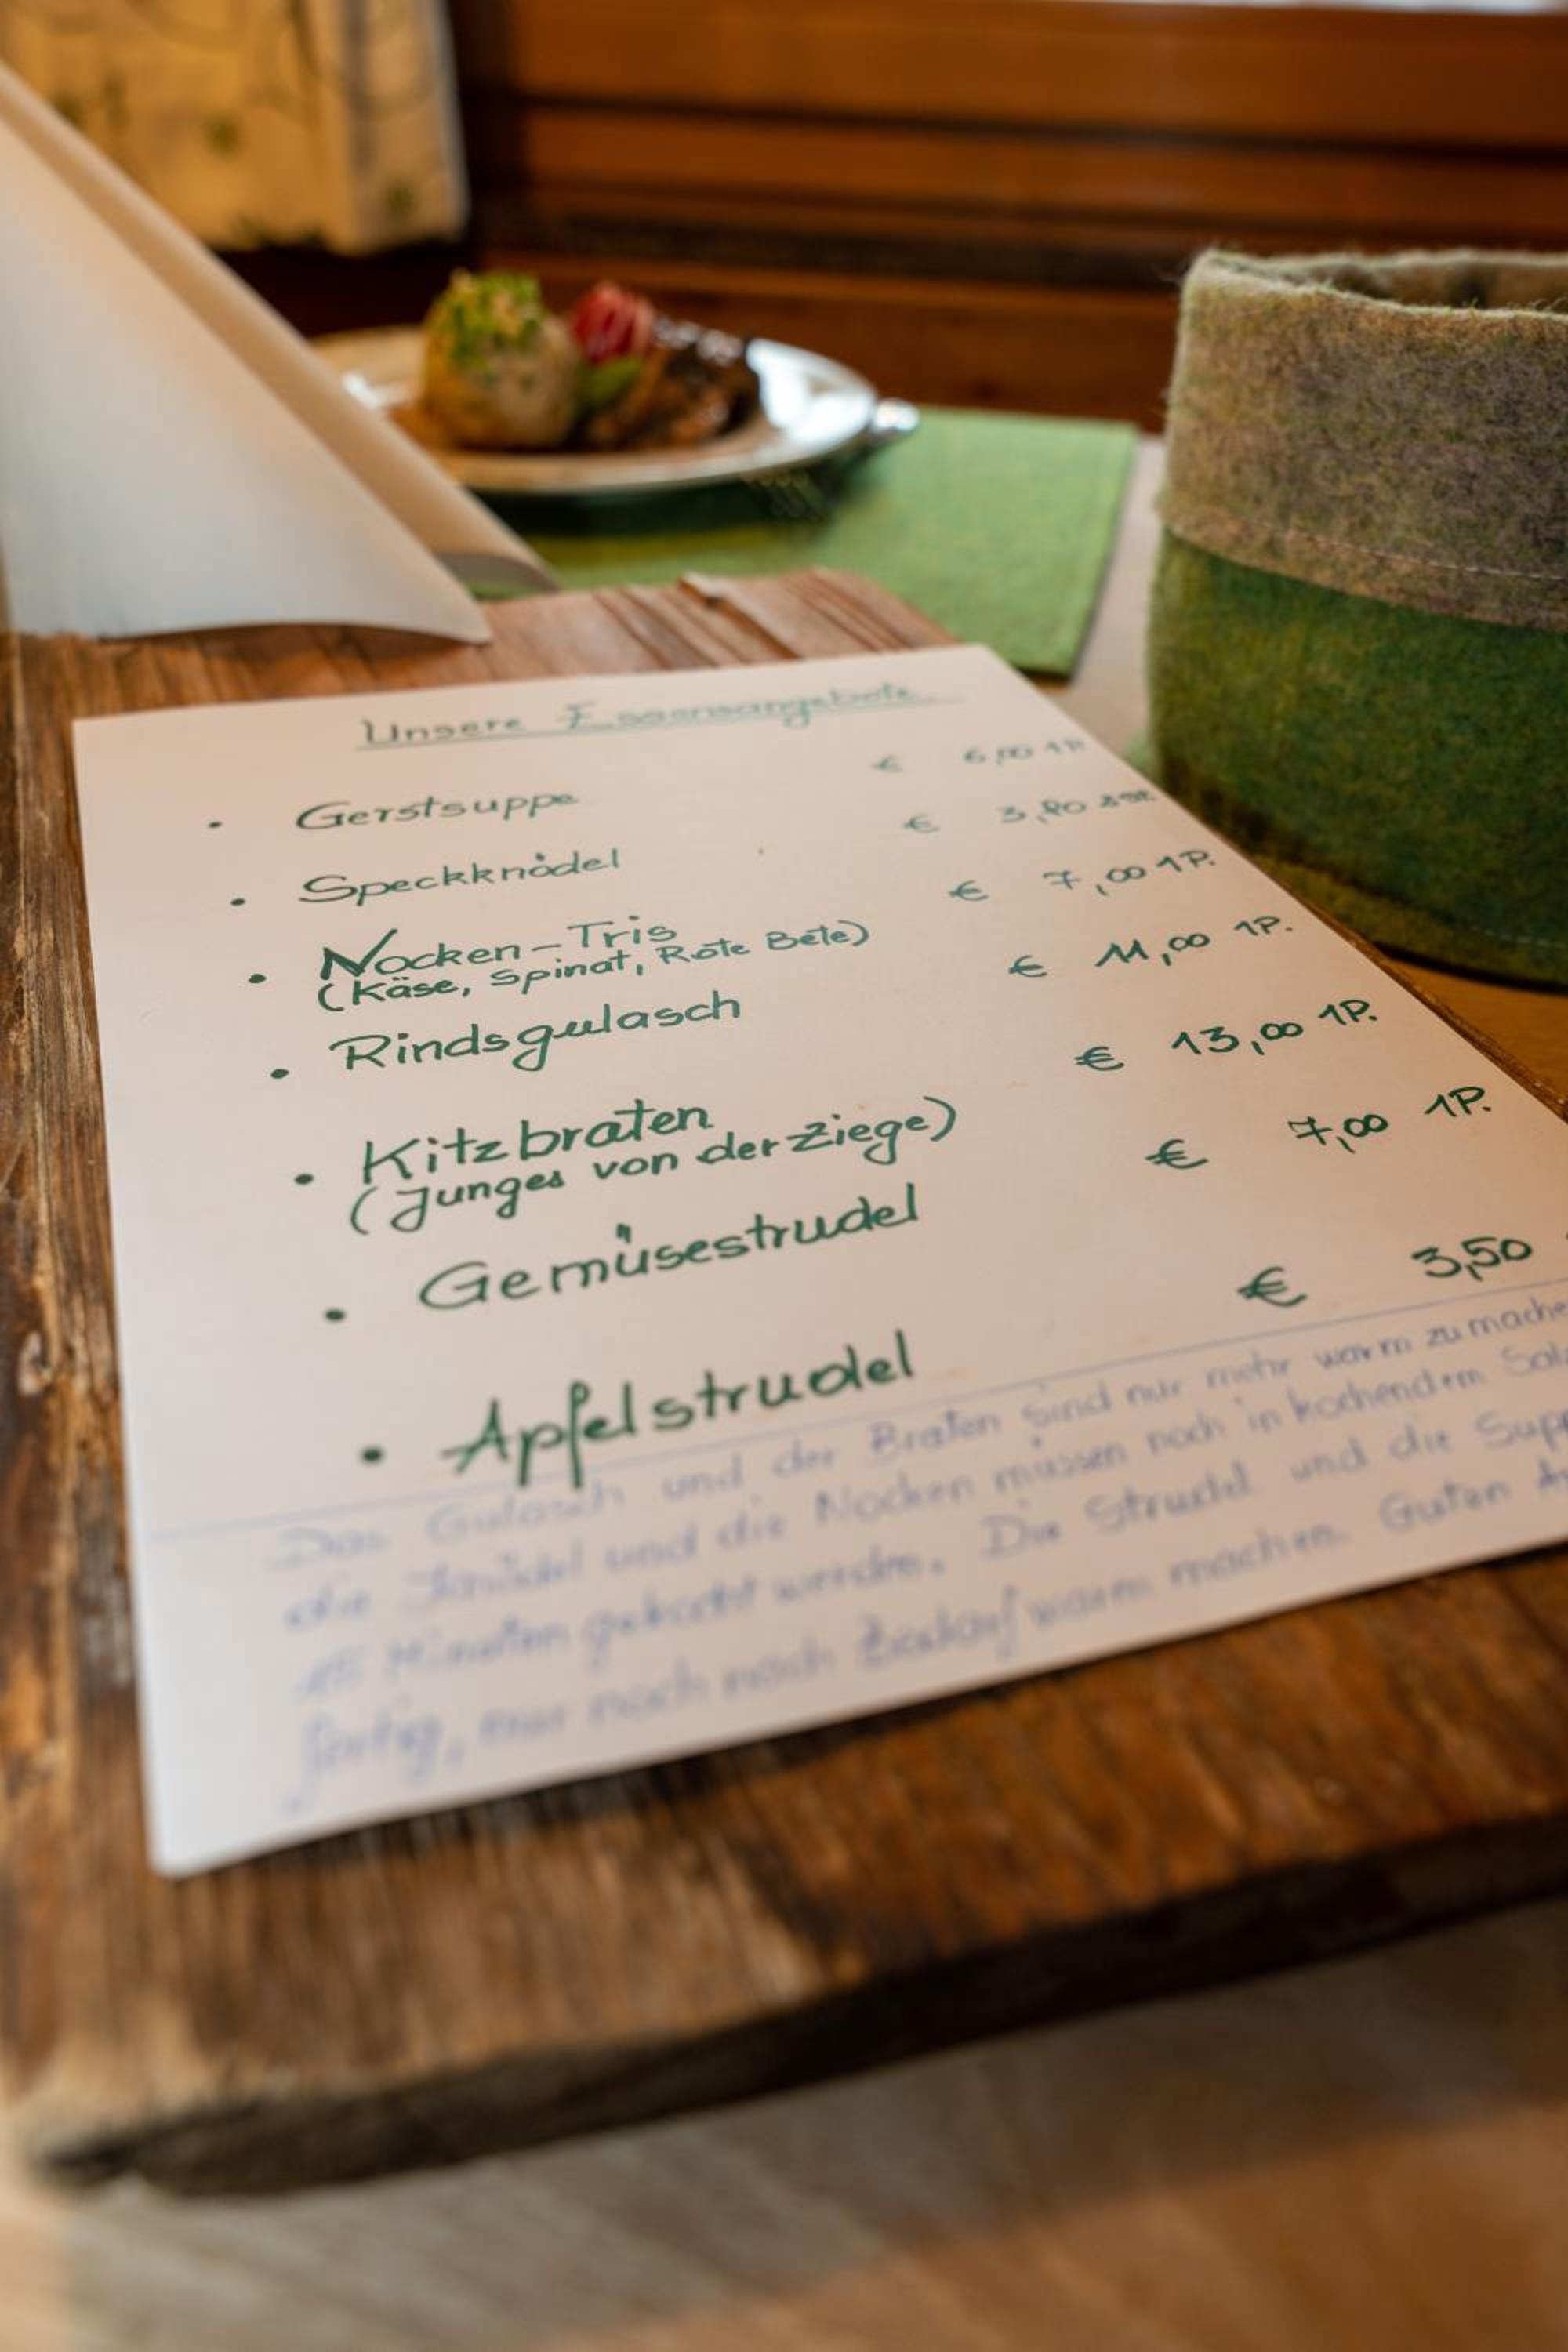 Unsere Essensangebote
• Gerstsuppe € 6,00 1P.
• Speckknödel € 3,80
• Nocken-Tris € 7,00 1P.
(Käse, Spinat, Rote Bete)
• Rindsgulasch € 11,00 1P.
• Kitzbraten € 13,00 1P.
(Junges von der Ziege)
• Gemüsestrudel € 7,00 1P.
• Apfelstrudel € 3,50
Das Gulasch und der Braten sind nur mehr warm zu mache
die Knödel und die Nocken müssen noch in kochendem Salz
15 Minuten gekocht werden. Die Strudel und die Supp
fertig, nur noch nach Bedarf warm machen. Guten A